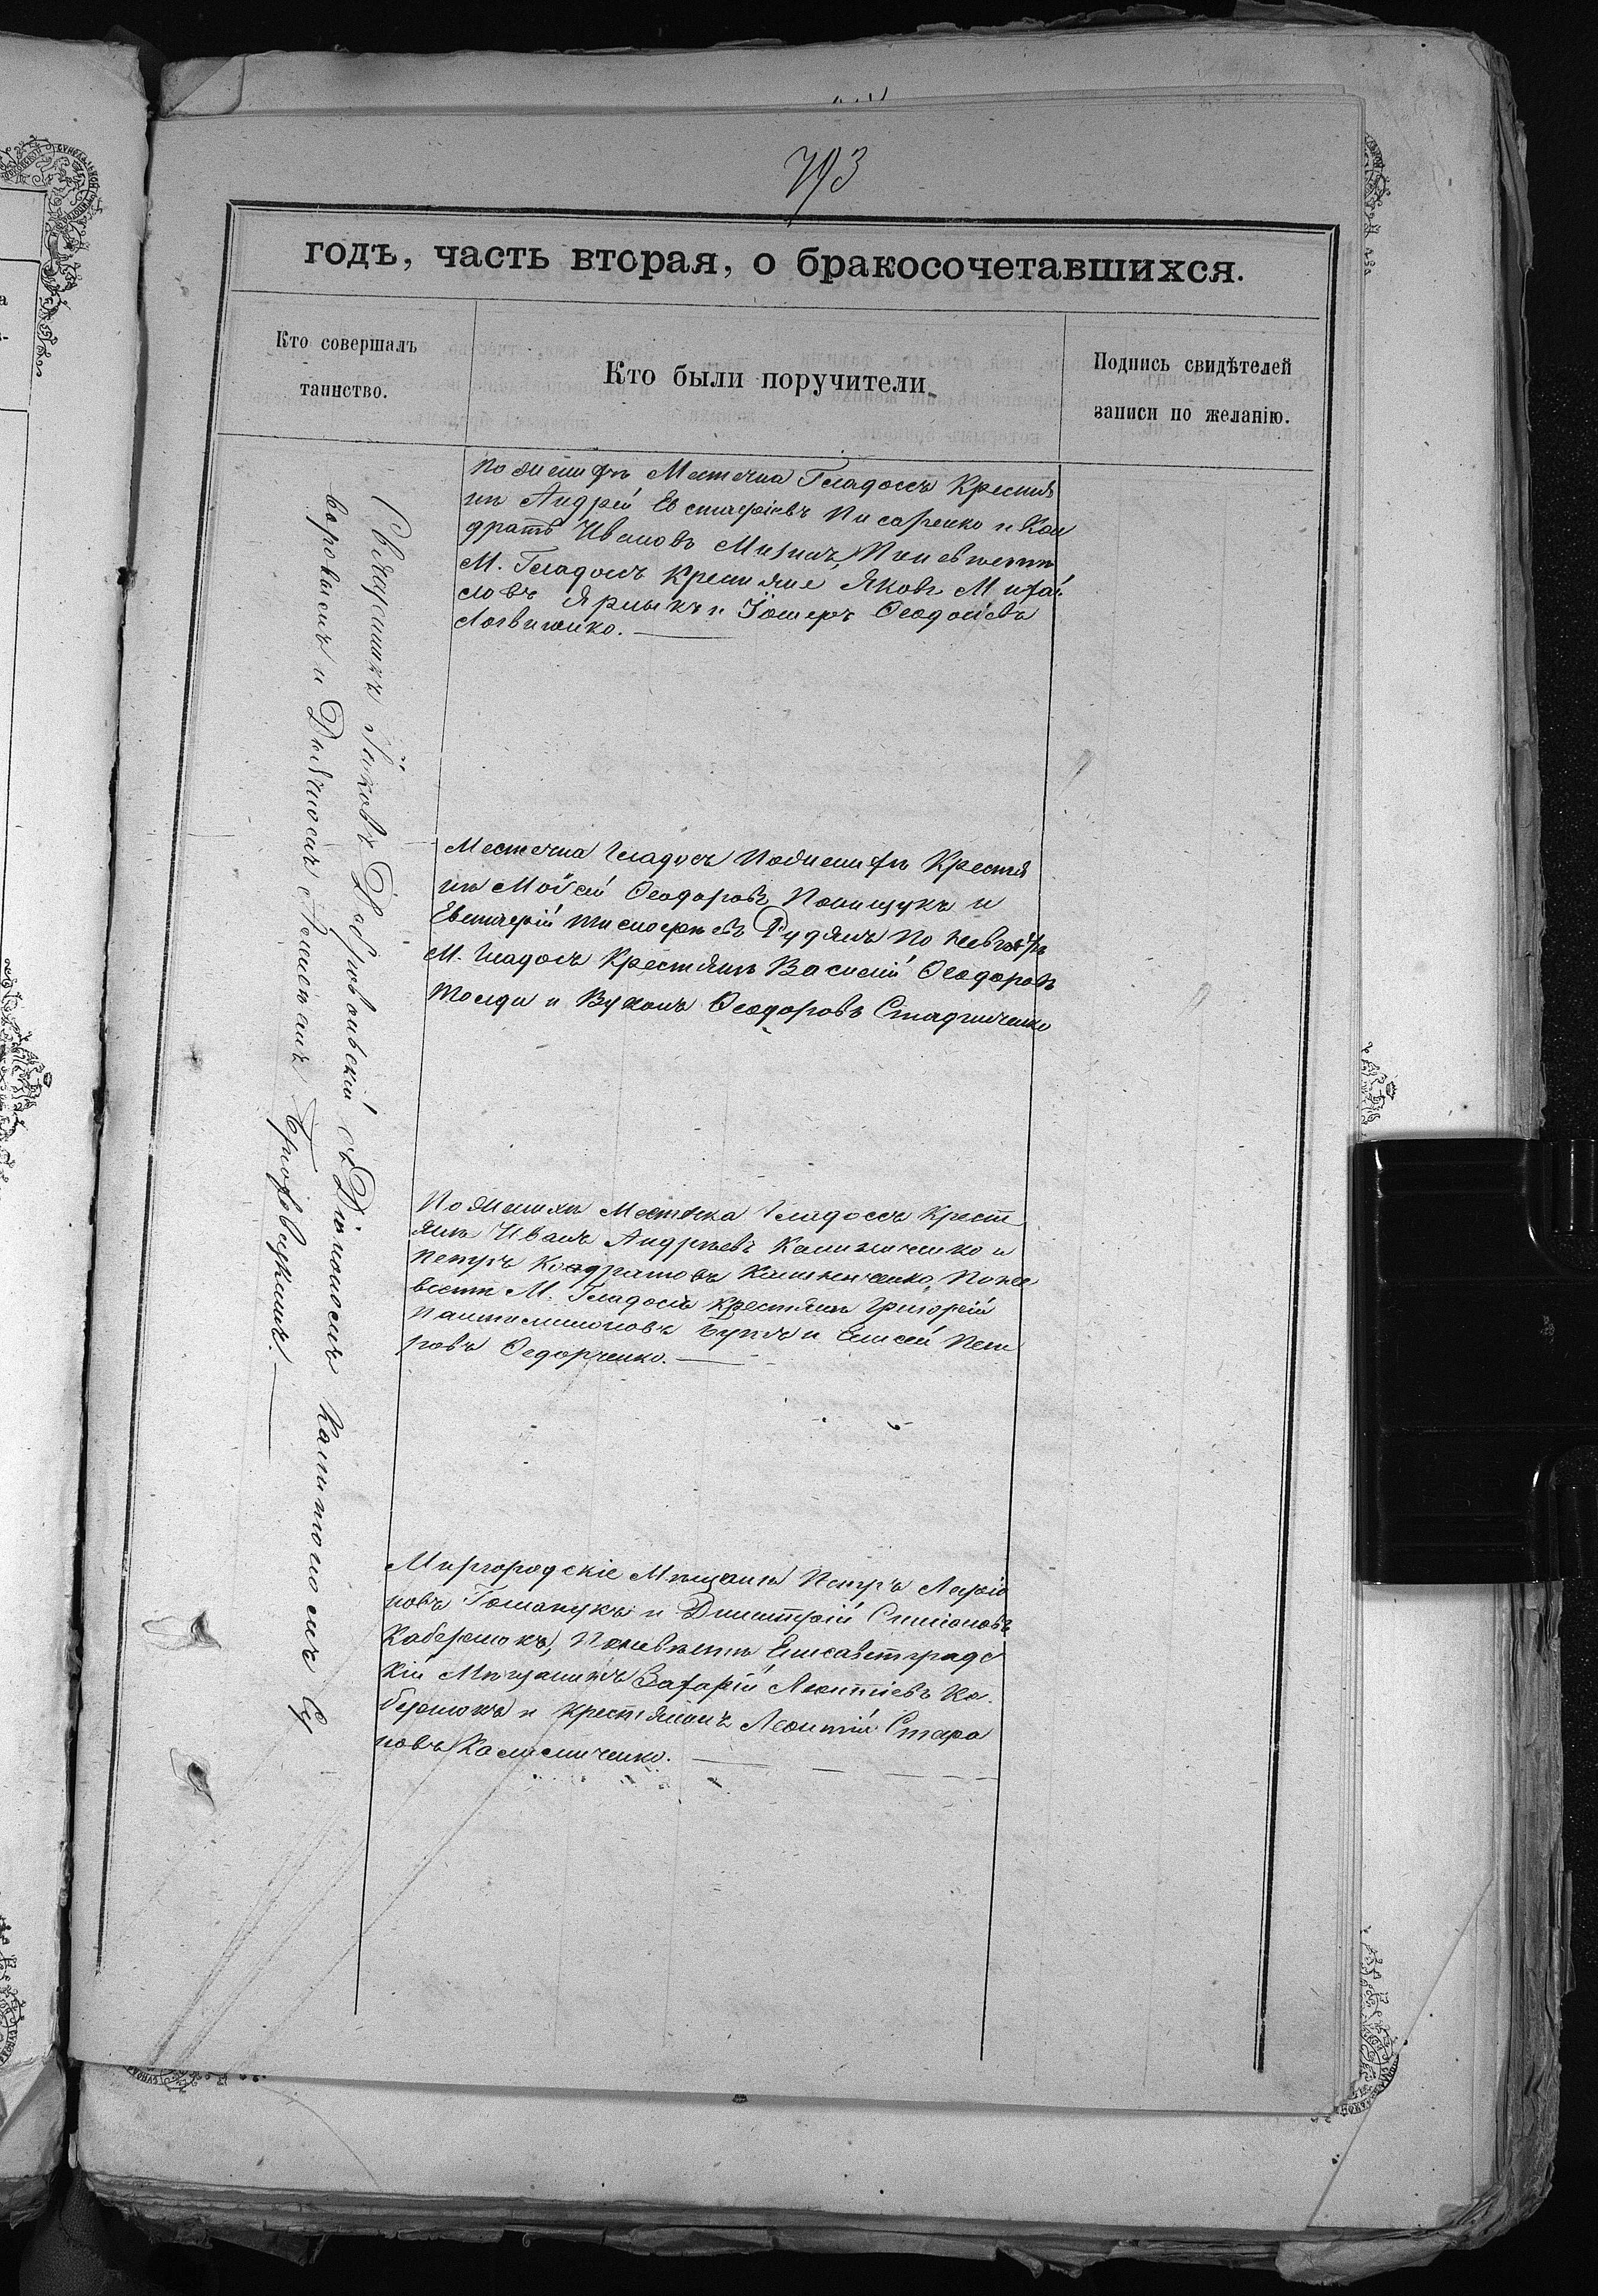 793
годъ, часть вторая, о бракосочетавшихся.
Кто совершалъ
таинство.
Кто были поручители
Подпись свидѣтелей
записи по желанію.
Священникъ Іаковъ Дабровольскій съ Діякономъ Капитономъ Су
воровымъ и Дьячкомъ
По женихѣ Местечка Гладосъ Крестья
не Андрей Евстафіевъ Писаренко и Кон
дратъ Ивановъ По невестѣ
М. Гладосъ Крестьяне Яковъ Михай
ловъ Ярмыкъ и Феодосіевъ
Логвиненко.
Местечка Гладосъ По женихѣ Крестья
не Мойсей Феодоровъ Полищукъ и
Евстафій Тимофѣевъ По невѣстѣ
М. Гладосъ Крестьяне Василій Феодоровъ
и Вуколъ Феодоровъ Стадниченко
По женихѣ Местечка Гладосъ Крест
яне Иванъ Андрѣевъ Калиниченко и
Петръ Кондратовъ Калиниченко, По не
вестѣ М. Гладосъ Крестьяне Григорій
Пантелимоновъ и Елисей Пет
ровъ Федорченко.
Миргородскіе Мѣщане Петръ Ларіо
новъ и Димитрій Симіоновъ
По невѣстѣ Елисаветградс
кій Мѣщанинъ Захарій Леонтіевъ Ка
и крестьянинъ Леонтій
новъ Калиниченко.